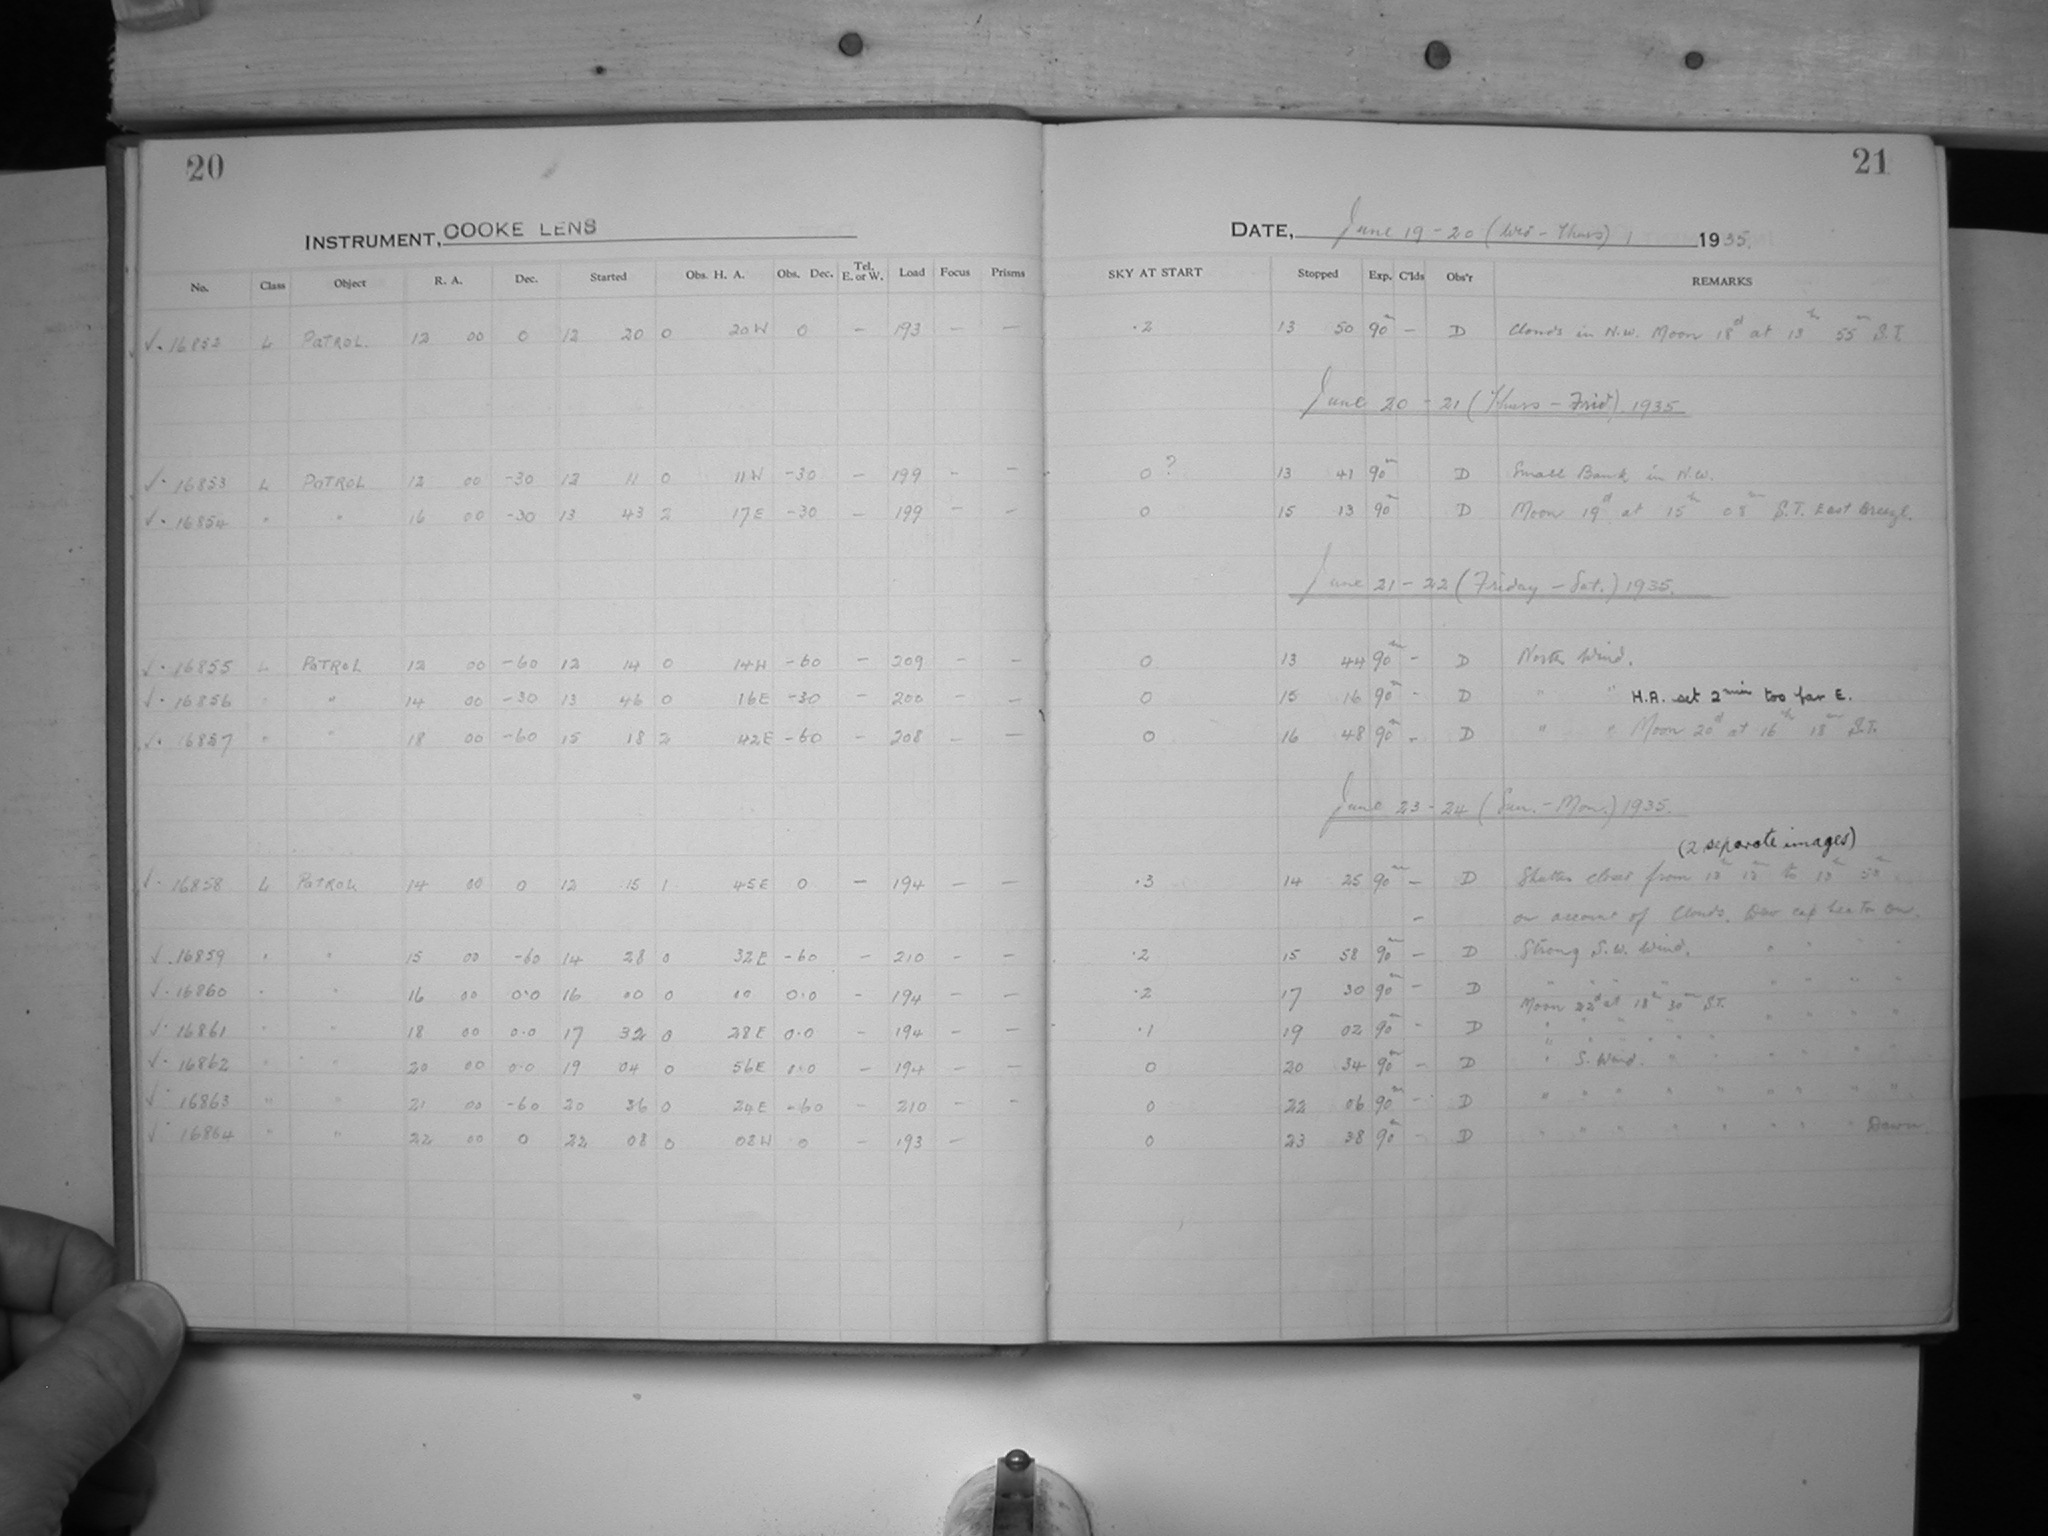 20
INSTRUMENT, COOKE LENS
No. Class Object R. A. Dec. Started Obs. H. A. Obs. Dec. Tel. E. or W. Load Focus Prisms
√ . 16852 L PATROL. 12 00 0 12 20 0 20W 0 - 193 - -
√ . 16853 L PATROL 12 00 -30 12 11 0 11W -30 - 199 - -
√ . 16854 " " 16 00 -30 13 43 2 17E -30 - 199 - -
√ . 16855 L PATROL 12 00 -60 12 14 0 14W -60 - 209 - -
√ . 16856 " " 14 00 -30 13 46 0 16E -30 - 200 - -
√ . 16857 " " 18 00 -60 15 18 2 42E -60 - 208 - -
√ . 16858 L PATROL 14 00 0 12 15 1 45E 0 - 194 - -
√ . 16859 " " 15 00 -60 14 28 0 32E -60 - 210 - -
√ . 16860 " " 16 00 0.0 16 00 0 00 0.0 - 194 - -
√ . 16861 " " 18 00 0.0 17 32 0 28E 0.0 - 194 - -
√ . 16862 " " 20 00 0.0 19 04 0 56E 0.0 - 194 - -
√ . 16863 " " 21 00 -60 20 36 0 24E -60 - 210 - -
√ . 16864 " " 22 00 0 22 08 0 08W 0 - 193 -
21
DATE, June 19-20 (Wed - Thurs) 1935.
SKY AT START Stopped Exp. C'lds Obs'r REMARKS
.2 13 50 90m - D Clouds in N.W. Moon 18d at 13h 55m S.T.
June 20-21 (Thurs - Frid) 1935
0? 13 41 90m D Small Bank in N.W.
0 15 13 90m D Moon 19d at 15h 08m S.T. East Breeze.
June 21-22 (Friday - Sat.) 1935.
0 13 44 90m - D North Wind.
0 15 16 90m - D " " H.A. set 2min too far E.
0 16 48 90m - D " " Moon 20d at 16h 18m S.T.
June 23-24 (Sun. - Mon.) 1935.
(2 separate images)
.3 14 25 90m - D Shutter closed from
- on account of Clouds. Dew cap heater on.
.2 15 58 90m - D Strong S.W. Wind. " " " "
.2 17 30 90m - D " " " " " " "
Moon 22d at 18h 30m S.T.
.1 19 02 90m - D " " " " " "
0 20 34 90m - D " S. Wind. " " " " "
0 22 06 90m - D " " " " " " " "
0 23 38 90m - D " " " " " " " Dawn